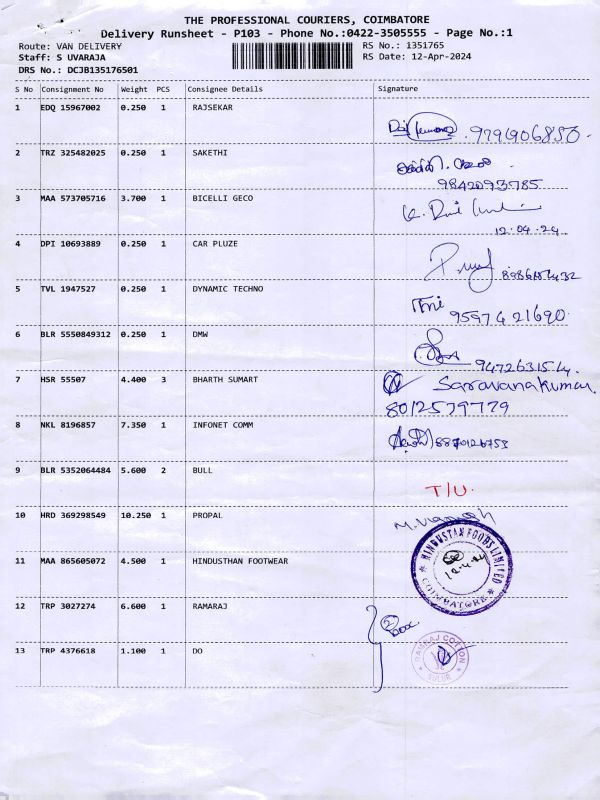 THE PROFESSIONAL COURIERS, COIMBATORE
Delivery Runsheet - P103 - Phone No.:0422-3505555 - Page No.:1
Route: VAN DELIVERY RS No.: 1351765
Staff: S UVARAJA RS Date: 12-Apr-2024
DRS No.: DCJB135176501
S No Consignment No Weight PCS Consignee Details Signature
1 EDQ 15967002 0.250 1 RAJSEKAR
2 TRZ 325482025 0.250 1 SAKETHI
9842093785
3 MAA 573705716 3.700 1 BICELLI GECO
12.04.24
4 DPI 10693889 0.250 1 CAR PLUZE
5 TVL 1947527 0.250 1 DYNAMIC TECHNO
9597421690
6 BLR 5550849312 0.250 1 DMW
7 HSR 55507 4.400 3 BHARTH SUMART Saravanakumar
8012579779
8 NKL 8196857 7.350 1 INFONET COMM
9 BLR 5352064484 5.600 2 BULL
T/U.
10 HRD 369298549 10.250 1 PROPAL
11 MAA 865605072 4.500 1 HINDUSTHAN FOOTWEAR
HINDUSTAN FOODS LIMITED
12.4.24
COIMBATORE
12 TRP 3027274 6.600 1 RAMARAJ
2 Box
13 TRP 4376618 1.100 1 DO
RAMRAJ COTTON
SULUR